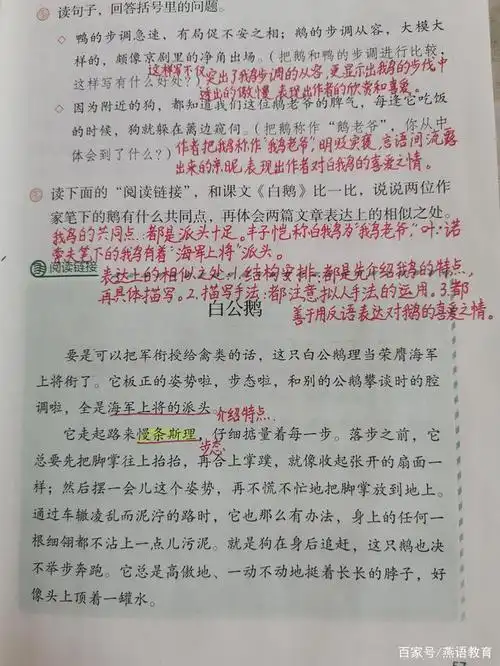 读句子，回答括号里的问题。
◇ 鸭的步调急速，有局促不安之相；鹅的步调从容，大模大
样的，颇像京剧里的净角出场。（把鹅和鸭的步调进行比较，
这样写有什么好处？）
这样写不仅突出了我鹅步调的从容，更显示出我鹅的步伐中
透出的傲慢，表现出作者的欣赏和喜爱。
◇ 因为附近的狗，都知道我们这位鹅老爷的脾气，每逢它吃饭
的时候，狗就躲在篱边窥伺。（把鹅称作“鹅老爷”，你从中
体会到了什么？）
作者把鹅称作“我鹅老爷”，明贬实褒，言语间流露
出来的亲昵，表现出作者对白我鹅的喜爱之情。
读下面的“阅读链接”，和课文《白鹅》比一比，说说两位作
家笔下的鹅有什么共同点，再体会两篇文章表达上的相似之处。
我鹅的共同点：都是派头十足。丰子恺称白我鹅为“我鹅老爷”，叶·诺
索夫笔下的我鹅有着“海军上将”派头。
阅读链接
表达上的相似之处：1.结构安排：都是先介绍我鹅的特点，
再具体描写。2.描写手法：都注意拟人手法的运用。3.都
善于用反语表达对我鹅的喜爱之情。
白公鹅
要是可以把军衔授给禽类的话，这只白公鹅理当荣膺海军
上将衔了。它板正的姿势啦，步态啦，和别的公鹅攀谈时的腔
调啦，全是海军上将的派头。
介绍特点
它走起路来慢条斯理，仔细掂量着每一步。落步之前，它
步态
总要先把脚掌往上抬抬，再合上掌蹼，就像收起张开的扇面一
样；然后摆一会儿这个姿势，再不慌不忙地把脚掌放到地上。
通过车辙凌乱而泥泞的路时，它也那么有办法，身上的任何一
根细翎都不沾上一点儿污泥。就是狗在身后追赶，这只鹅也决
不举步奔跑。它总是高傲地、一动不动地挺着长长的脖子，好
像头上顶着一罐水。
百家号/燕语教育